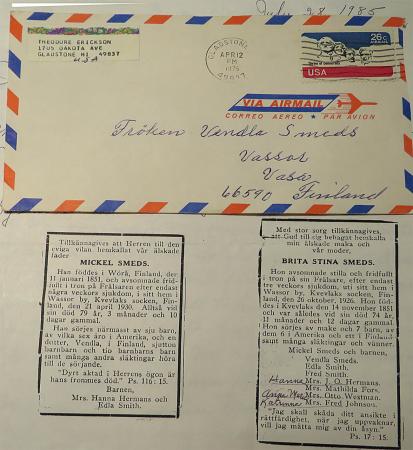 July 28 1985
THEODORE ERICKSON
1705 DAKOTA AVE
GLADSTONE MI 49837
USA
GLADSTONE
APR 12
PM
1976
49837
26c
AIRMAIL
USA
VIA AIRMAIL
CORREO AEREO PAR AVION
Fröken Vendla Smeds
Vassor
Vasa
66590 Finland
Tillkännagives att Herren till den
eviga vilan hemkallat vår älskade
fader
MICKEL SMEDS.
Han föddes i Wörå, Finland, der
11 januari 1851, och avsomnade frid-
fullt i tron på Frälsaren efter endast
några veckors sjukdom, i sitt hem i
Wassor by, Kvevlaks socken, Fin-
land, den 21 april 1930. Alltså vid
en ålder av 79 år, 3 månader och 10
dagar gammal.
Han sörjes närmast av sju barn,
av vilka sex äro i Amerika, och en
dotter, Vendla, i Finland, sjutton
barnbarn och tio barnbarns barn
samt många andra släktingar höra
till de sörjande.
"Dyrt aktad i Herrens ögon är
hans frommes död." Ps. 116: 15.
Barnen,
Mrs. Hanna Hermans och
Edla Smith.
Med stor sorg tillkännagives,
att Gud till sig behagat hemkalla
min älskade maka och
vår moder,
BRITA STINA SMEDS.
Hon avsomnade stilla och fridfullt
i tron på sin Frälsare, efter endast
tre veckors sjukdom, i sitt hem i
Wassor by, Kvevlaks socken, Fin-
land, den 26 oktober, 1926. Hon föd-
des i Kvevlaks den 14 november 1851
och var således vid sin död 74 år,
11 månader och 12 dagar gammal.
Hon sörjes av make och 7 barn, av
dem 6 i Amerika och ett i Finland
samt många släktingar och vänner.
Mickel Smeds och barnen,
Vendla Smeds.
Edla Smith.
Fred Smith.
Hanna Mrs. J. O. Hermans.
Mrs. Mathilda Fors.
Mrs. Otto Westman.
Katrina Mrs. Fred Johnson.
"Jag skall skåda ditt ansikte i
rättfärdighet, när jag uppvaknar,
vill jag mätta mig av din åsyn."
Ps. 17: 15.